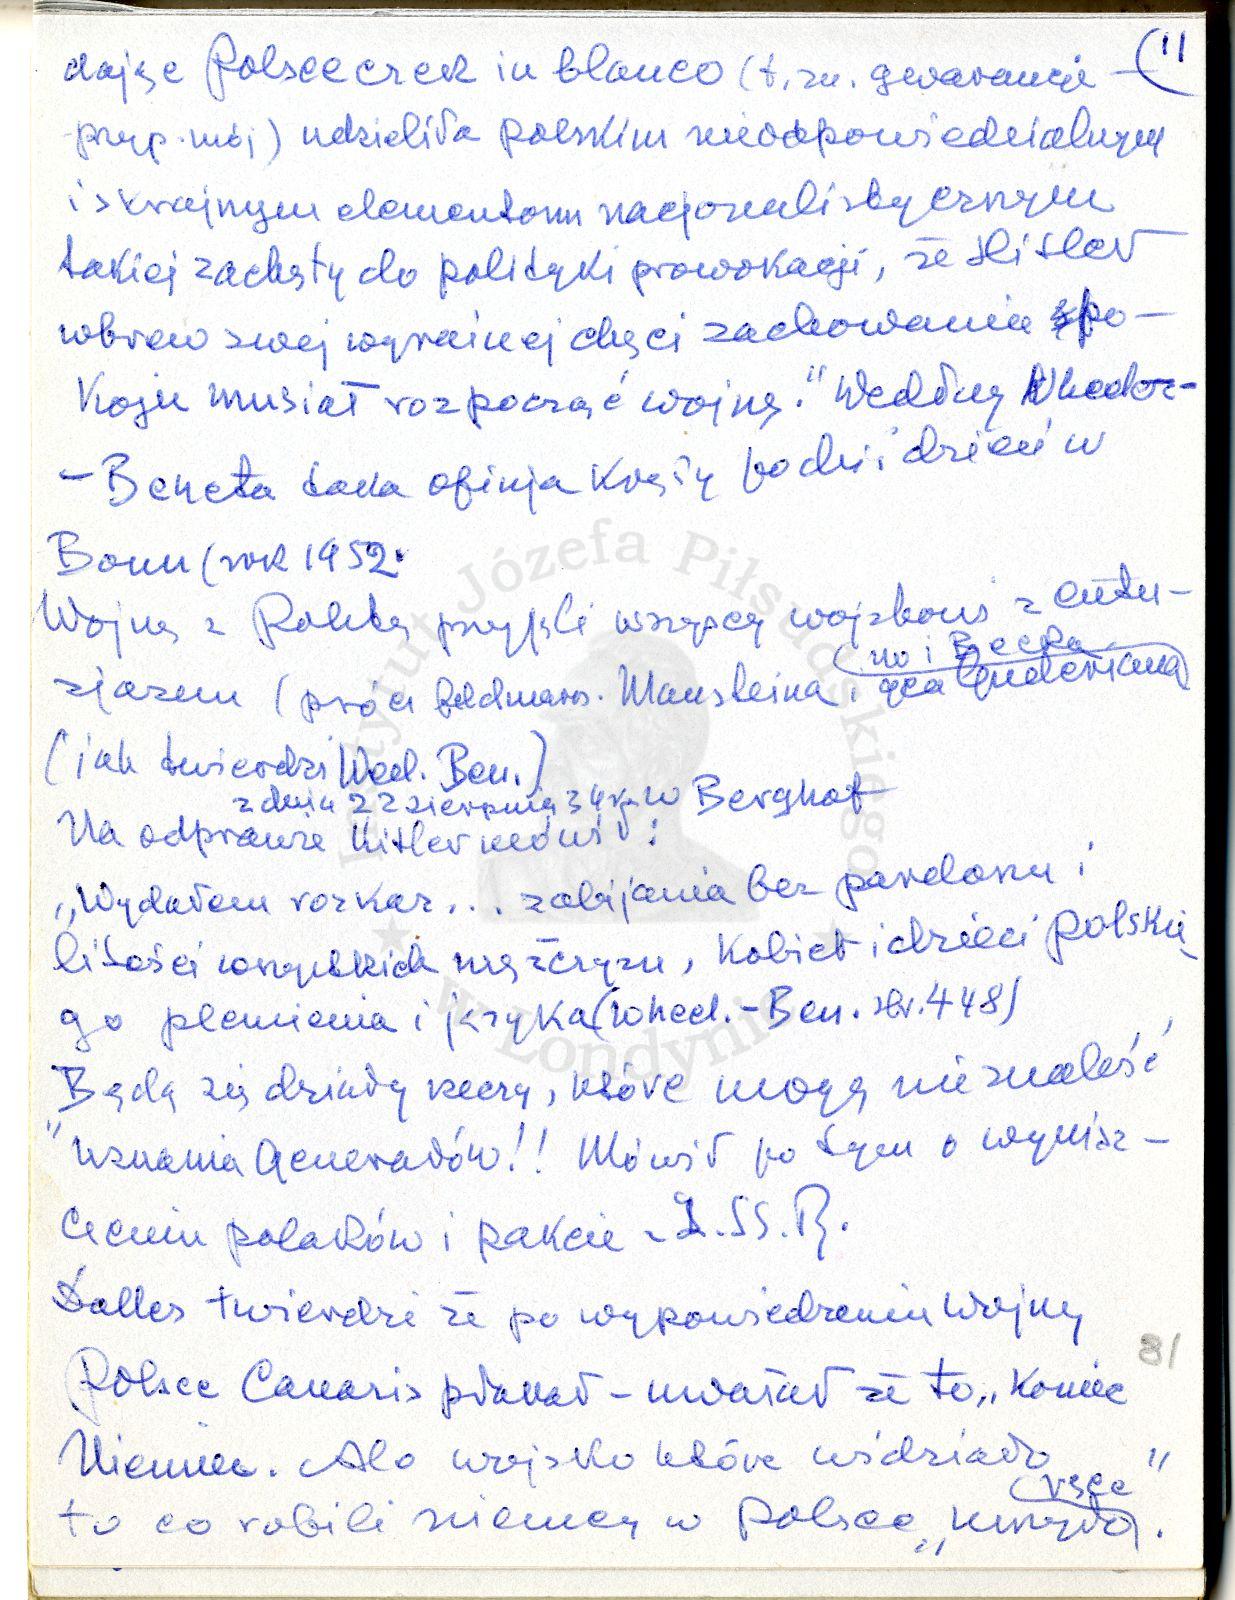 (11
dając Polsce czek in blanco (t.zn. gwarancje —
przyp. mój) udzieliła polskim nieodpowiedzialnym
i skrajnym elementom nacjonalistycznym
takiej zachęty do polityki prowokacji, że Hitler
wbrew swej wyraźnej chęci zachowania spo-
koju musiał rozpocząć wojnę." Według Wheeler-
-Beneta taka opinja krąży po dziś dzień w
Bonn (rok 1952.
Wojnę z Polską przyjęli wszyscy wojskowi z entu-
zjazmem (prócz feldmars. Mansteina i gea Guderiana)
(no i Becka
(jak twierdzi Weel. Ben.)
z dnia 22 sierpnia 34 r. w Berghof
Na odprawie Hitler mówił:
„Wydałem rozkaz... zabijania bez pardonu i
litości wszystkich mężczyzn, kobiet i dzieci polskie
go plemienia i języka (Wheel.-Ben. str. 448)
Będą się działy rzeczy, które mogą nie znaleść
"uznania Generałów!! Mówił po tym o wynisz-
czeniu polaków i pakcie z Z.SS.R.
Dalles twierdzi że po wypowiedzeniu wojny
Polsce Canaris płakał - uważał że to „koniec
Niemiec. Ale wojsko które widziało "
to co robili niemcy w Polsce „umyło ręce.
81
Instytut Józefa Piłsudskiego
w Londynie